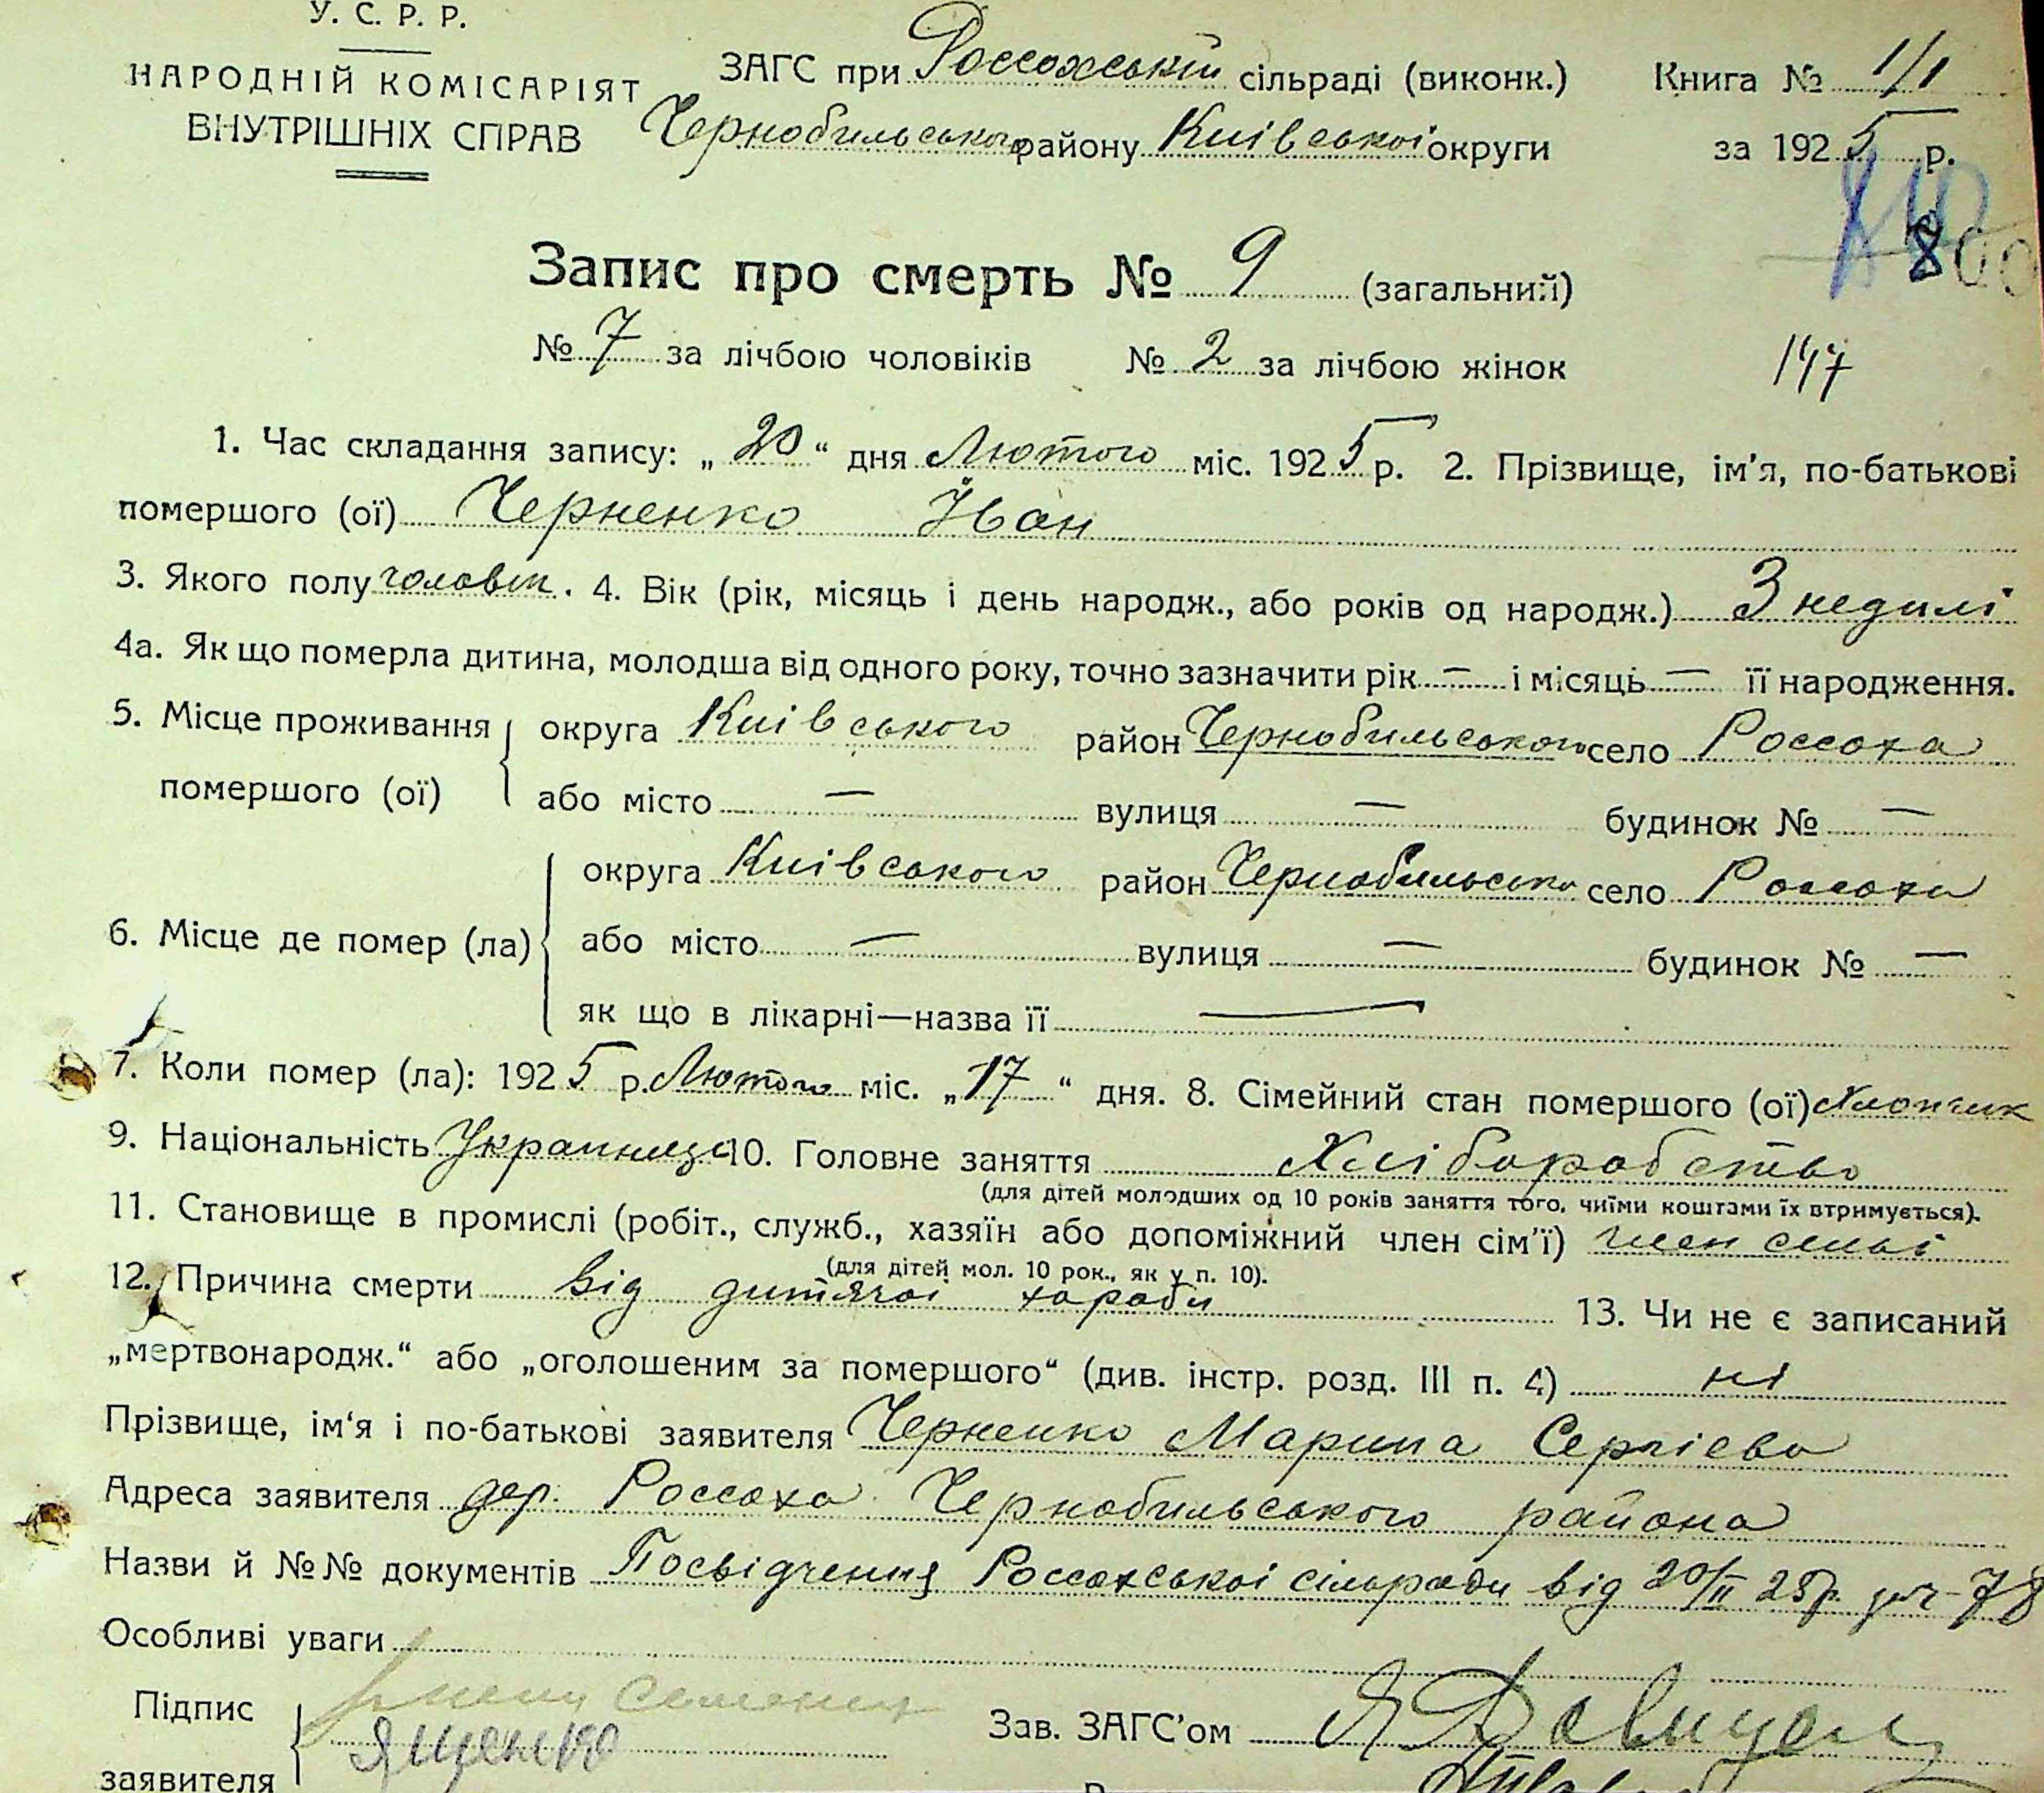 У. С. Р. Р.
НАРОДНІЙ КОМІСАРІЯТ
ВНУТРІШНІХ СПРАВ
ЗАГС при Россохській сільраді (виконк.)
Чернобильського району Київської округи
Книга № 1/1
за 1925 р.
Запис про смерть № 9 (загальний)
№ 7 за лічбою чоловіків № 2 за лічбою жінок
147
1. Час складання запису: „20“ дня Лютого міс. 1925 р. 2. Прізвище, ім'я, по-батькові
помершого (ої) Черненко Іван
3. Якого полу чоловік. 4. Вік (рік, місяць і день народж., або років од народж.) 3 неділі
4а. Як що померла дитина, молодша від одного року, точно зазначити рік — і місяць — її народження.
5. Місце проживання помершого (ої) округа Київського район Чернобильського село Россоха
або місто — вулиця — будинок № —
6. Місце де помер (ла) округа Київського район Чернобильсько село Россоха
або місто — вулиця — будинок № —
як що в лікарні—назва її —
7. Коли помер (ла): 1925 р. Лютого міс. „17“ дня. 8. Сімейний стан помершого (ої) Хлопчик
9. Національність 10. Головне заняття Хліборобство
(для дітей молодших од 10 років заняття того, чиїми коштами їх втримується).
11. Становище в промислі (робіт., служб., хазяїн або допоміжний член сім'ї) член семьі
(для дітей мол. 10 рок., як у п. 10).
12. Причина смерти від дитячої хороби 13. Чи не є записаний
„мертвонародж.“ або „оголошеним за помершого“ (див. інстр. розд. III п. 4) ні
Прізвище, ім'я і по-батькові заявителя Черненко Марина Сергієва
Адреса заявителя дер. Россоха Чернобильського района
Назви й №№ документів Посвідчення Россохської сільради від 20/II 25р. 78
Особливі уваги
Підпис заявителя Ященко
Зав. ЗАГС'ом